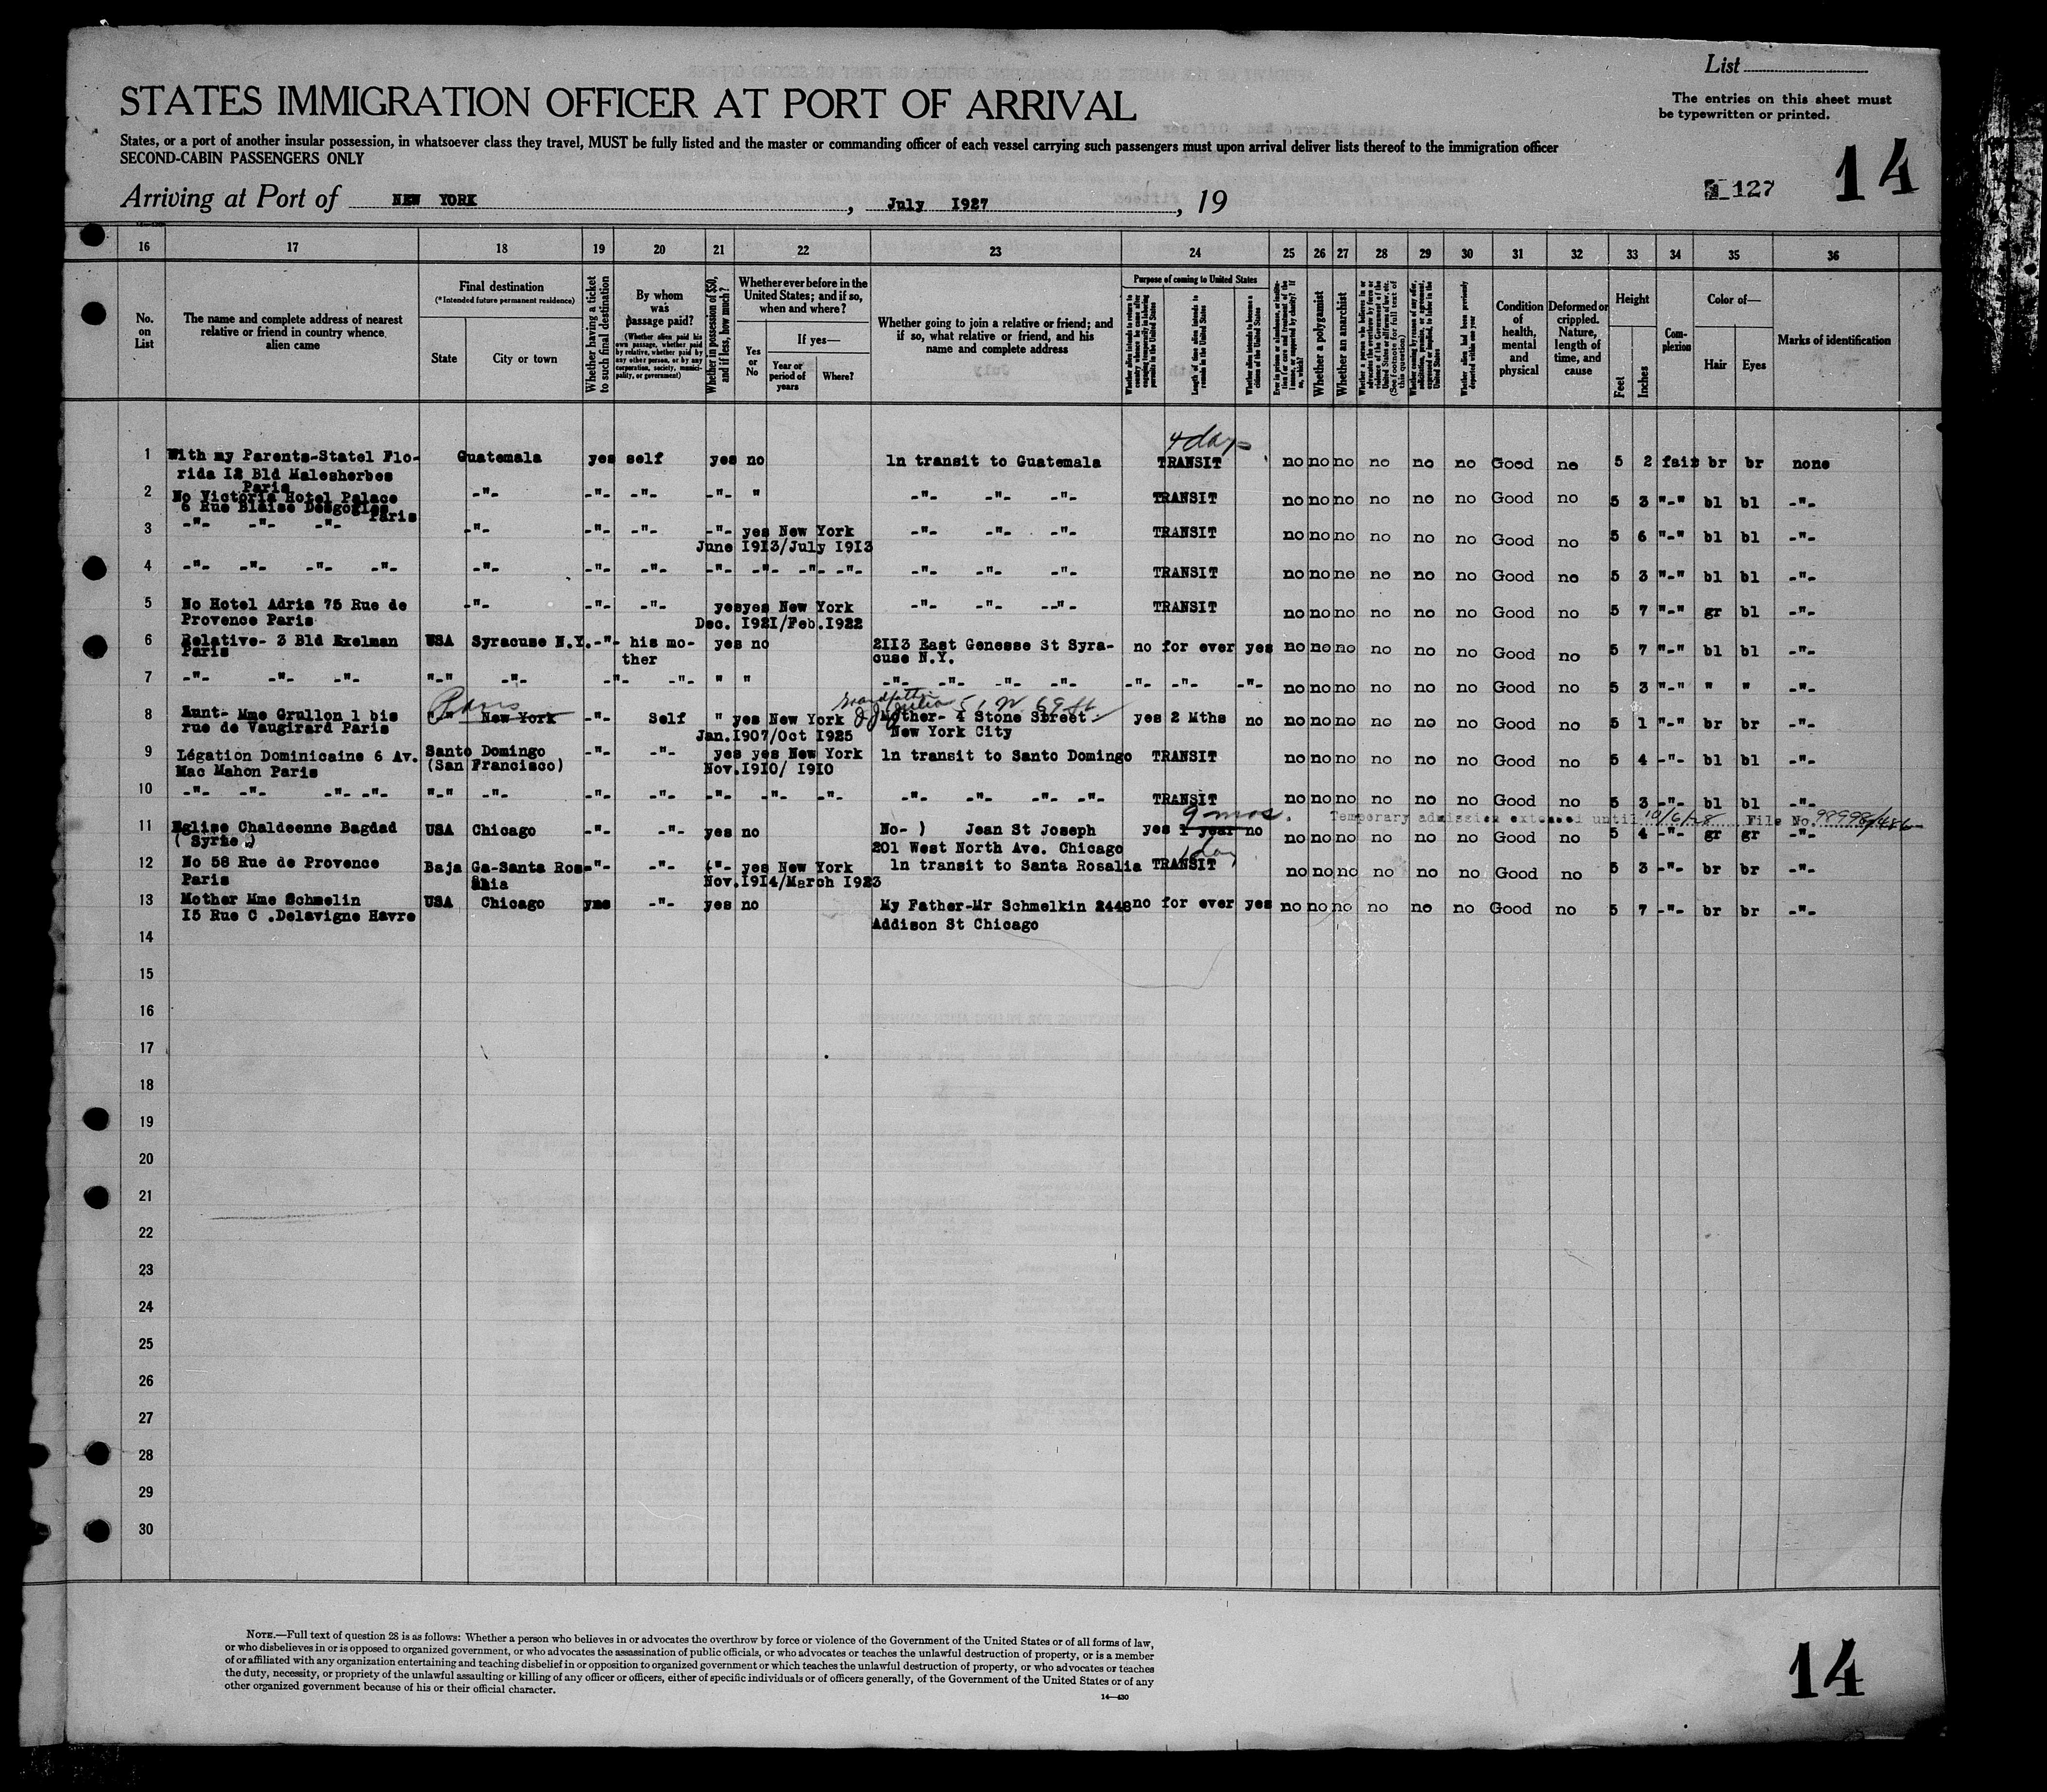 List
STATES IMMIGRATION OFFICER AT PORT OF ARRIVAL
The entries on this sheet must
be typewritten or printed.
States, or a port of another insular possession, in whatsoever class they travel, MUST be fully listed and the master or commanding officer of each vessel carrying such passengers must upon arrival deliver lists thereof to the immigration officer
SECOND-CABIN PASSENGERS ONLY
14
Arriving at Port of NEW YORK, July 1927, 19
127
16 17 18 19 20 21 22 23 24 25 26 27 28 29 30 31 32 33 34 35 36
No. on List
The name and complete address of nearest relative or friend in country whence alien came
Final destination
(*Intended future permanent residence)
State
City or town
Whether having a ticket to such final destination
By whom was passage paid?
(Whether alien paid his own passage, whether paid by relative, whether paid by any other person, or by any corporation, society, municipality, or government)
Whether in possession of $50, and if less, how much?
Whether ever before in the United States; and if so, when and where?
Yes or No
If yes—
Year or period of years
Where?
Whether going to join a relative or friend; and if so, what relative or friend, and his name and complete address
Purpose of coming to United States
Whether alien intends to return to country whence he came after engaging temporarily in laboring pursuits in the United States
Length of time alien intends to remain in the United States
Whether alien intends to become a citizen of the United States
Whether a polygamist
Whether an anarchist
Whether alien had been previously deported within one year
Condition of health, mental and physical
Deformed or crippled. Nature, length of time, and cause
Height
Feet
Inches
Complexion
Color of—
Hair
Eyes
Marks of identification
4 days
1 With my Parents-Statel Flo- Guatemala yes self yes no ln transit to Guatemala TRANSIT no no no no no no Good no 5 2 fair br br none
rida 12 Bld Malesherbes
Paris
2 No Victoria Hotel Palace -"- -"- -"- -"- " -"- -"- -"- TRANSIT no no no no no no Good no 5 3 "-" bl bl -"-
6 Rue Blaise Desgoffes
Paris
3 -"- -"- -"- -"- -"- -"- -"- yes New York -"- -"- -"- TRANSIT no no no no no no Good no 5 6 "-" bl bl -"-
June 1913/July 1913
4 -"- -"- -"- -"- -"- -"- -"- -"- -"- -"- -"- -"- -"- -"- TRANSIT no no no no no no Good no 5 3 "-" bl bl -"-
5 No Hotel Adria 75 Rue de -"- -"- -"- yes yes New York -"- -"- -"- TRANSIT no no no no no no Good no 5 7 "-" gr bl -"-
Provence Paris Dec. 1921/Feb.1922
6 Relative- 3 Bld Exelman USA Syracuse N.Y. -"- his mo- yes no 2113 East Genesse St Syra- no for ever yes no no no no no no Good no 5 7 "-" bl bl -"-
Paris ther cuse N.Y.
7 -"- -"- -"- "-" -"- -"- -"- " " -"- -"- -"- -"- -"- -"- -"- no no no no no no Good no 5 3 "-" " " -"-
Paris Grandfather 51 W. 69 St
8 Aunt- Mme Grullon 1 bis "-" New York -"- Self " yes New York Mother- 4 Stone Street yes 2 Mths no no no no no no no Good no 5 1 "-" br br -"-
rue de Vaugirard Paris Jan.1907/Oct 1925 New York City
9 Légation Dominicaine 6 Av. Santo Domingo -"- -"- yes yes New York ln transit to Santo Domingo TRANSIT no no no no no no Good no 5 4 -"- bl bl -"-
Mac Mahon Paris (San Francisco) Nov.1910/ 1910
10 -"- -"- -"- -"- "-" -"- -"- -"- -"- -"- -"- -"- -"- -"- -"- TRANSIT no no no no no no Good no 5 3 -"- bl bl -"-
9 mos. Temporary admission extended until 10/6/28 File No. 98998/486
11 Eglise Chaldeenne Bagdad USA Chicago -"- -"- yes no No- ) Jean St Joseph yes 1 year no no no no no no no Good no 5 4 -"- gr gr -"-
( Syrie ) 201 West North Ave. Chicago
1 day
12 No 58 Rue de Provence Baja Ga-Santa Ros- -"- -"- -"- yes New York ln transit to Santa Rosalia TRANSIT no no no no no no Good no 5 3 -"- br br -"-
Paris Nov.1914/March 1923
13 Mother Mme Schmelin USA Chicago yes -"- yes no My Father-Mr Schmelkin 2448 no for ever yes no no no no no no Good no 5 7 -"- br br -"-
15 Rue C .Delavigne Havre Addison St Chicago
14
15
16
17
18
19
20
21
22
23
24
25
26
27
28
29
30
NOTE.—Full text of question 28 is as follows: Whether a person who believes in or advocates the overthrow by force or violence of the Government of the United States or of all forms of law,
or who disbelieves in or is opposed to organized government, or who advocates the assassination of public officials, or who advocates or teaches the unlawful destruction of property, or is a member
of or affiliated with any organization entertaining and teaching disbelief in or opposition to organized government or which teaches the unlawful destruction of property, or who advocates or teaches
the duty, necessity, or propriety of the unlawful assaulting or killing of any officer or officers, either of specific individuals or of officers generally, of the Government of the United States or of any
other organized government because of his or their official character.
14—430
14